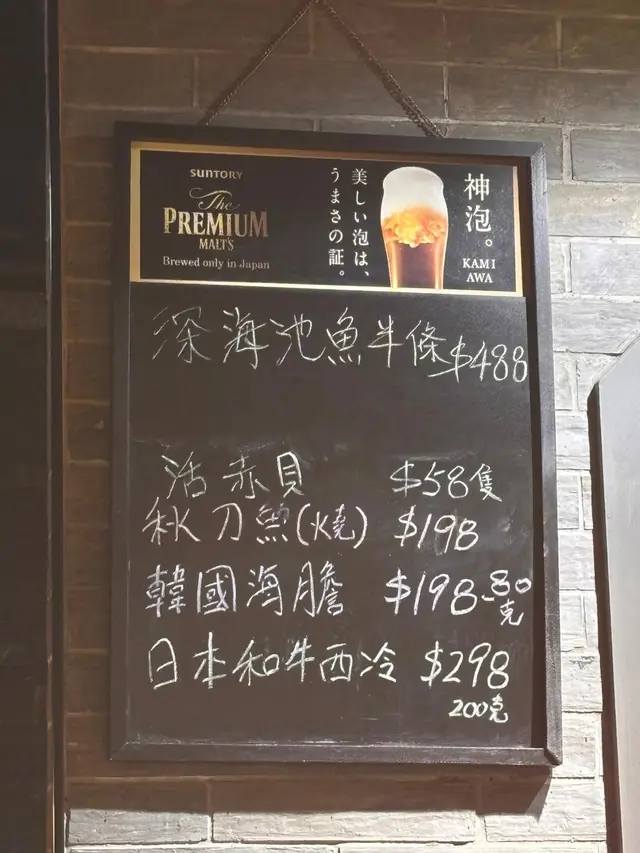 SUNTORY
The
PREMIUM
MALT'S
Brewed only in Japan
美しい泡は、
うまさの証。
神泡。
KAMI
AWA
深海池魚半條$488
活赤貝 $58隻
秋刀魚(燒) $198
韓國海膽 $198-80克
日本和牛西冷 $298
200克